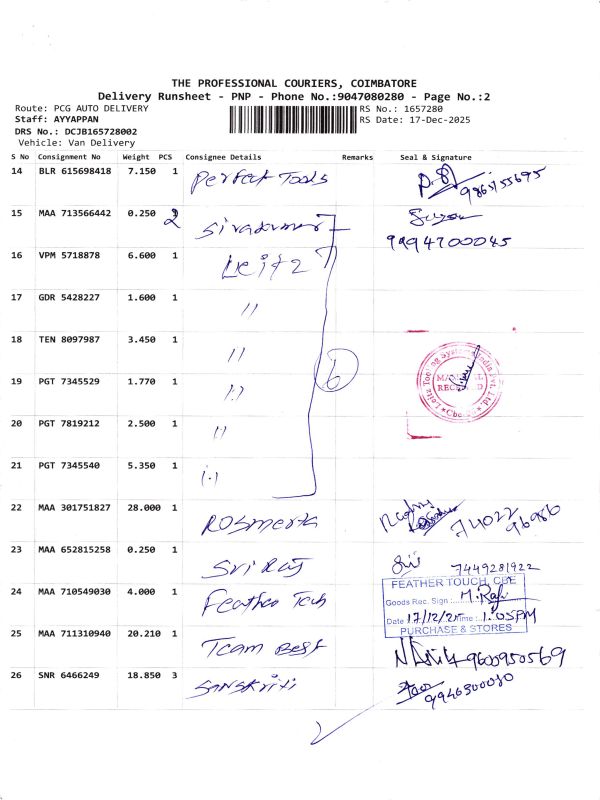 THE PROFESSIONAL COURIERS, COIMBATORE
Delivery Runsheet - PNP - Phone No.:9047080280 - Page No.:2
Route: PCG AUTO DELIVERY RS No.: 1657280
Staff: AYYAPPAN RS Date: 17-Dec-2025
DRS No.: DCJB165728002
Vehicle: Van Delivery
S No Consignment No Weight PCS Consignee Details Remarks Seal & Signature
14 BLR 615698418 7.150 1 Perfect Tools
15 MAA 713566442 0.250 2
9994700045
16 VPM 5718878 6.600 1 Leitz
17 GDR 5428227 1.600 1 "
18 TEN 8097987 3.450 1 "
19 PGT 7345529 1.770 1 "
20 PGT 7819212 2.500 1 "
21 PGT 7345540 5.350 1 "
6
Leitz Tooling Systems India Pvt. Ltd.
MATERIAL
RECEIVED
22 MAA 301751827 28.000 1 Rosmerta 74022
96986
23 MAA 652815258 0.250 1 Sri Raj 7449281922
24 MAA 710549030 4.000 1 Feather Tech
FEATHER TOUCH, CBE
Goods Rec. Sign : M. Raju
Date 17/12/25 Time : 1.05PM
PURCHASE & STORES
25 MAA 711310940 20.210 1 Team Best 9600950569
26 SNR 6466249 18.850 3 Sanskriti
9946300010